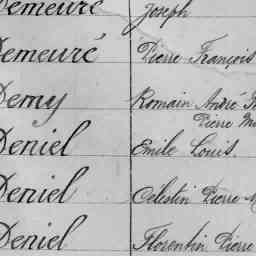 Demeuré Joseph
Demeuré Pierre François
Demy Romain André
Pierre
Deniel Emile Louis.
Deniel Célestin Pierre
Deniel Florentin Pierre